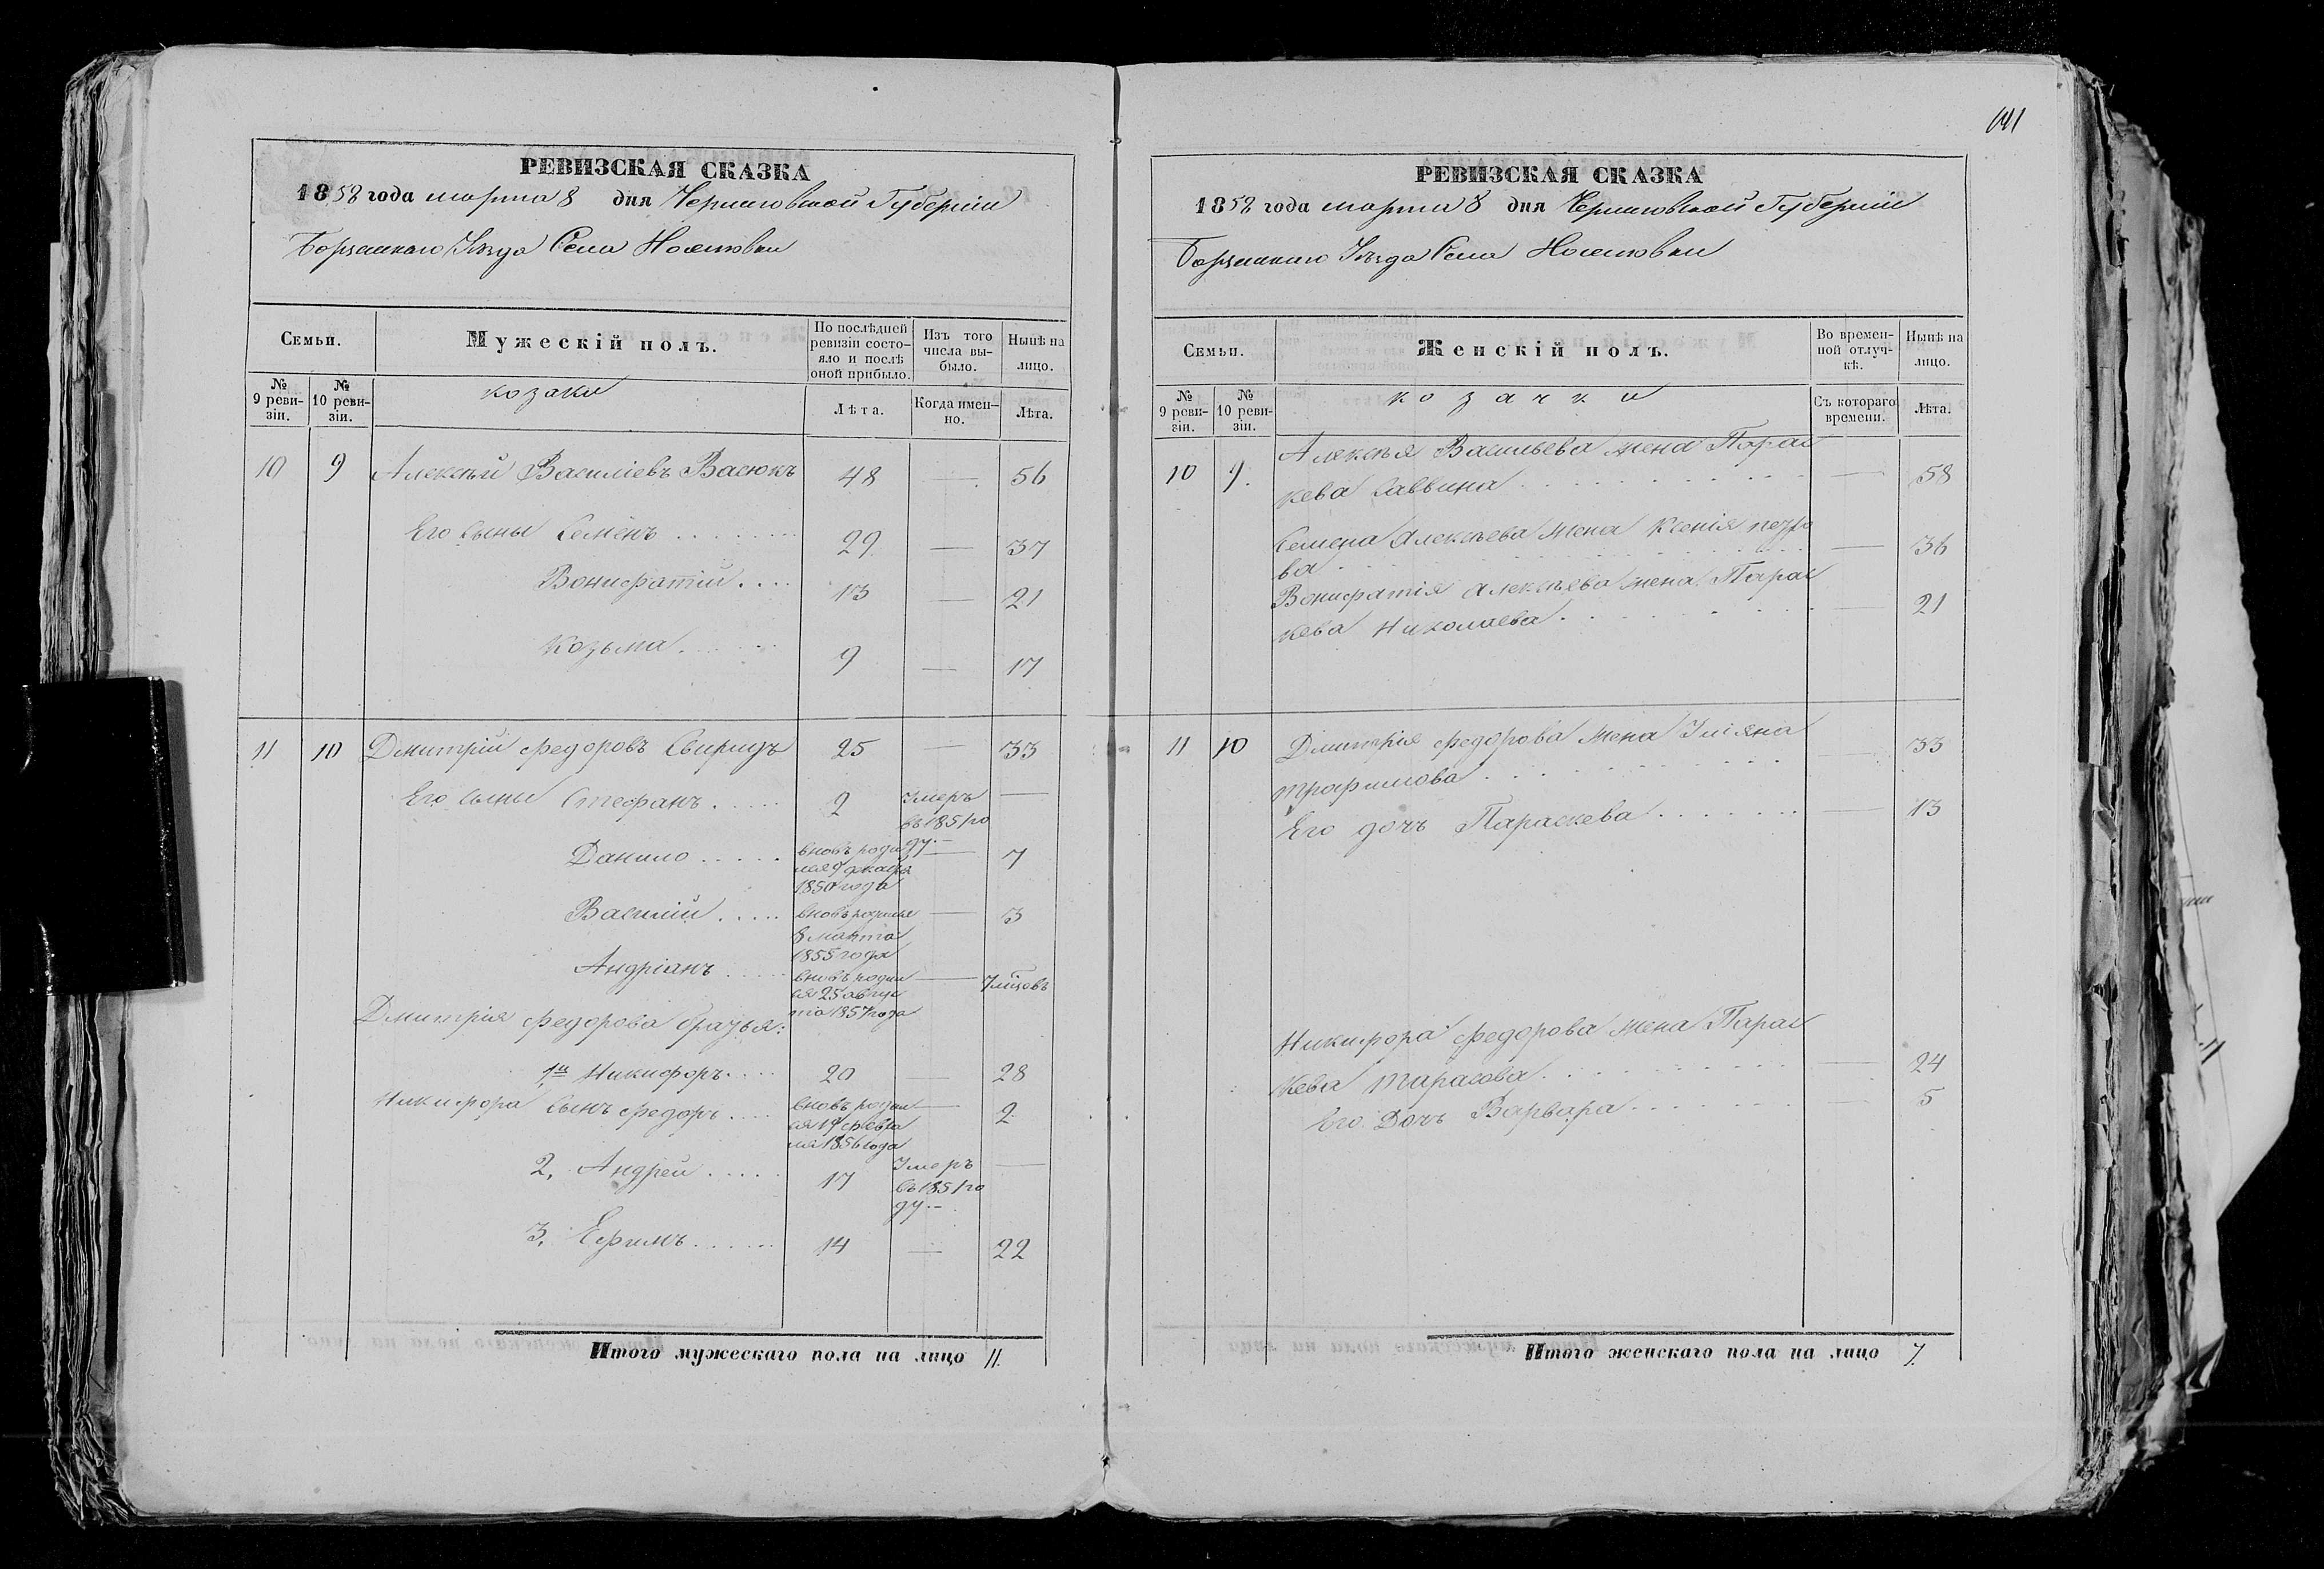 141
РЕВИЗСКАЯ СКАЗКА
1858 года марта 8 дня Черниговской Губерніи
Борзенскаго Уѣзда Села
Семьи.
Мужескій полъ.
По послѣдней ревизіи состо-
яло и послѣ
оной прибыло.
Изъ того
числа вы-
было.
Нынѣ на
лицо.
№
9 реви-
зіи.
№
10 реви-
зіи.
козаки
Лѣта.
Когда имен-
но.
Лѣта.
10 9 Алексѣй Василіевъ Васюкъ 48 — 56
Его сыны Семенъ 29 — 37
Вонифатій 13 — 21
Козьма 9 — 17
11 10 Дмитрій Федоровъ Свиридъ 25 — 33
Его сыны Стефанъ 2 Умеръ —
въ 1851 го
ду.
Данило вновь роди — 7
лся 9 декабря
1850 года
Василій вновь родился — 3
8 марта
1855 года
Андріанъ вновь родил — 7 мѣсяцовъ
ся 25 авгус
та 1857 года
Дмитрія Федорова братья:
1й Никифоръ 20 — 28
Никифора сынъ Федоръ вновь родил — 2
ся 19 февра
ля 1856 года
2, Андрей 17 Умеръ —
въ 1851 го
ду.
3, Ефимъ 14 — 22
Итого мужескаго пола на лицо 11.
РЕВИЗСКАЯ СКАЗКА
1858 года марта 8 дня Черниговской Губерніи
Борзенскаго Уѣзда Села
Семьи.
Женскій полъ.
Во времен-
ной отлуч-
кѣ.
Нынѣ на
лицо.
№
9 реви-
зіи.
№
10 реви-
зіи.
козачки
Съ котораго
времени.
Лѣта.
10 9. Алексѣя Васильева жена Парас
кева Саввина — 58
Семена Алексѣева жена Ксенія петро
ва — 36
Вонифатія Алексѣева жена Парас
кева Николаева — 21
11 10 Дмитрія Федорова жена Уліяна
Трафимова — 33
Его дочь Параскева — 13
Никифора Федорова жена Парас
кева Тарасова — 24
Его Дочь Варвара — 5
Итого женскаго пола на лицо 7.